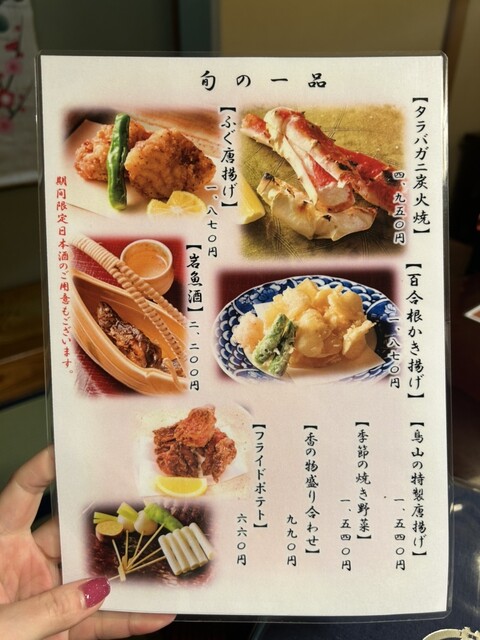 旬の一品
【タラバガニ炭火焼】
四、九五〇円
【ふぐ唐揚げ】
一、八七〇円
【百合根かき揚げ】
一、八七〇円
【岩魚酒】
二、二〇〇円
期間限定日本酒のご用意もございます。
【鳥山の特製唐揚げ】
一、五四〇円
【季節の焼き野菜】
一、五四〇円
【香の物盛り合わせ】
九九〇円
【フライドポテト】
六六〇円